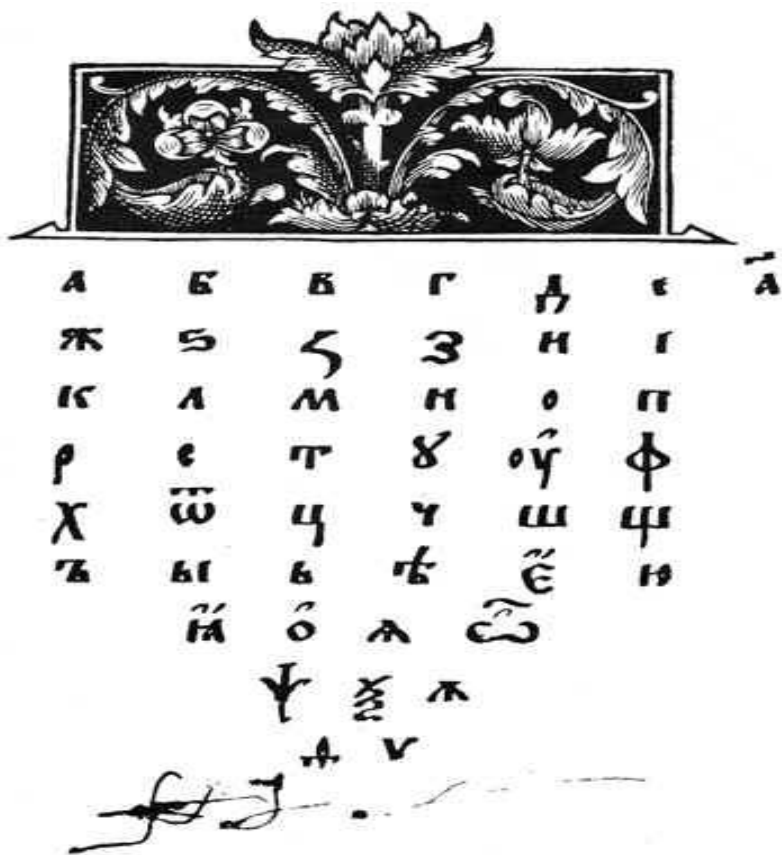 а б в г д є а҃
ж ѕ ꙁ з н і
к л м н о п
р с т ꙋ оу҆ ф
х ѿ ц ч ш щ
ъ ы ь ѣ є҆̈ ю
ꙗ҆̈ о҆ ѧ ѽ
ѱ ѯ ѫ
ѵ